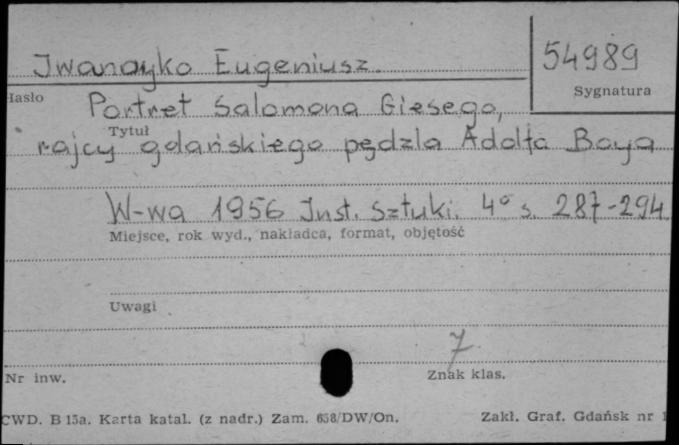 Iwanoyko Eugeniusz.
54989
Hasło
Sygnatura
Portret Salomona Giesego,
Tytuł
rajcy gdańskiego pędzla Adolfa Boya
W-wa 1956 Inst. Sztuki. 4° s. 287-294.
Miejsce, rok wyd., nakładca, format, objętość
Uwagi
7
Nr inw.
Znak klas.
CWD. B 15a. Karta katal. (z nadr.) Zam. 658/DW/On.
Zakł. Graf. Gdańsk nr 1